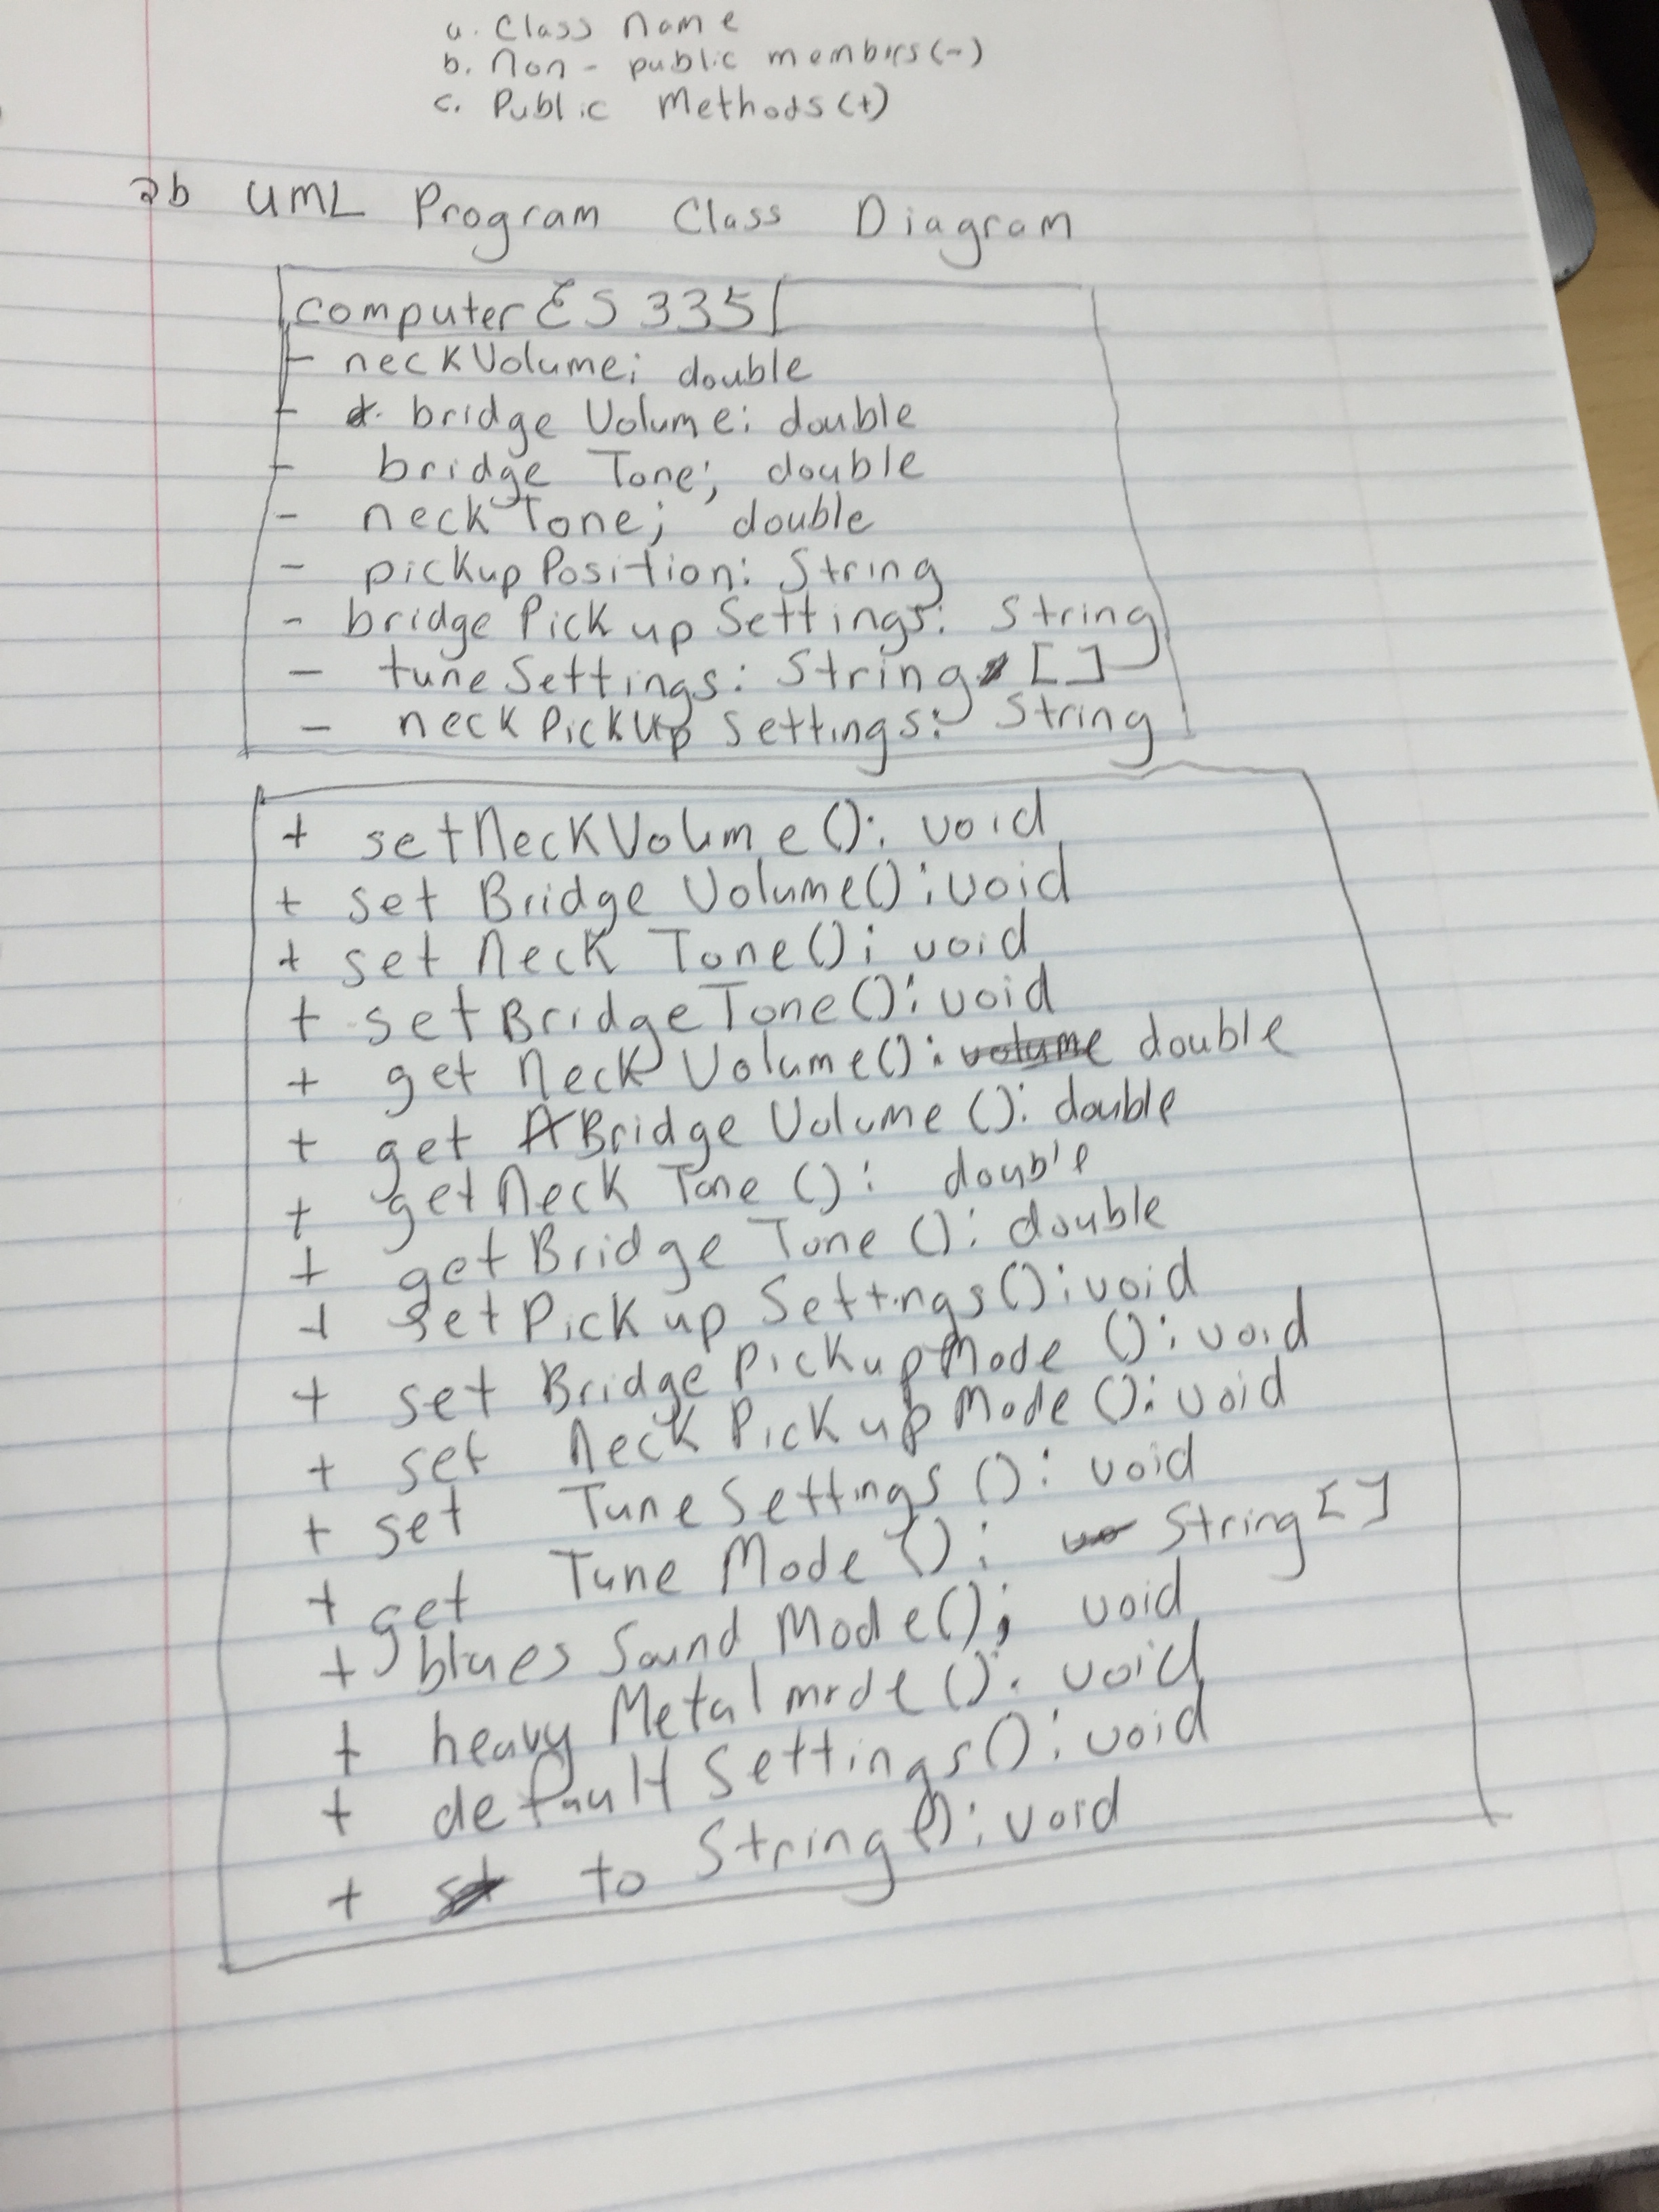 a. Class name
b. Non - public membrs (-)
c. Public Methods (+)
2b UML Program Class Diagram
computer ES 335
- neckVolume; double
- bridge Volume: double
- bridge Tone; double
- neck Tone; double
- pickup Position: String
- bridge Pickup Settings: String
- tune Settings: String []
- neck PickUp settings: String
+ setNeckVolume (): void
+ set Bridge Volume(): void
+ set Neck Tone(); void
+ set Bridge Tone(): void
+ get Neck Volume(): volume double
+ get Bridge Volume (): double
+ get Neck Tone (): double
+ get Bridge Tone (): double
+ set Pickup Settings(): void
+ set Bridge PickupMode (): void
+ set Neck Pickup Mode (): void
+ set Tune Settings (): void
+ get Tune Mode (): String []
+ blues Sound Mode(); void
+ heavy Metal mode (): void
+ default Settings(): void
+ to String(): void